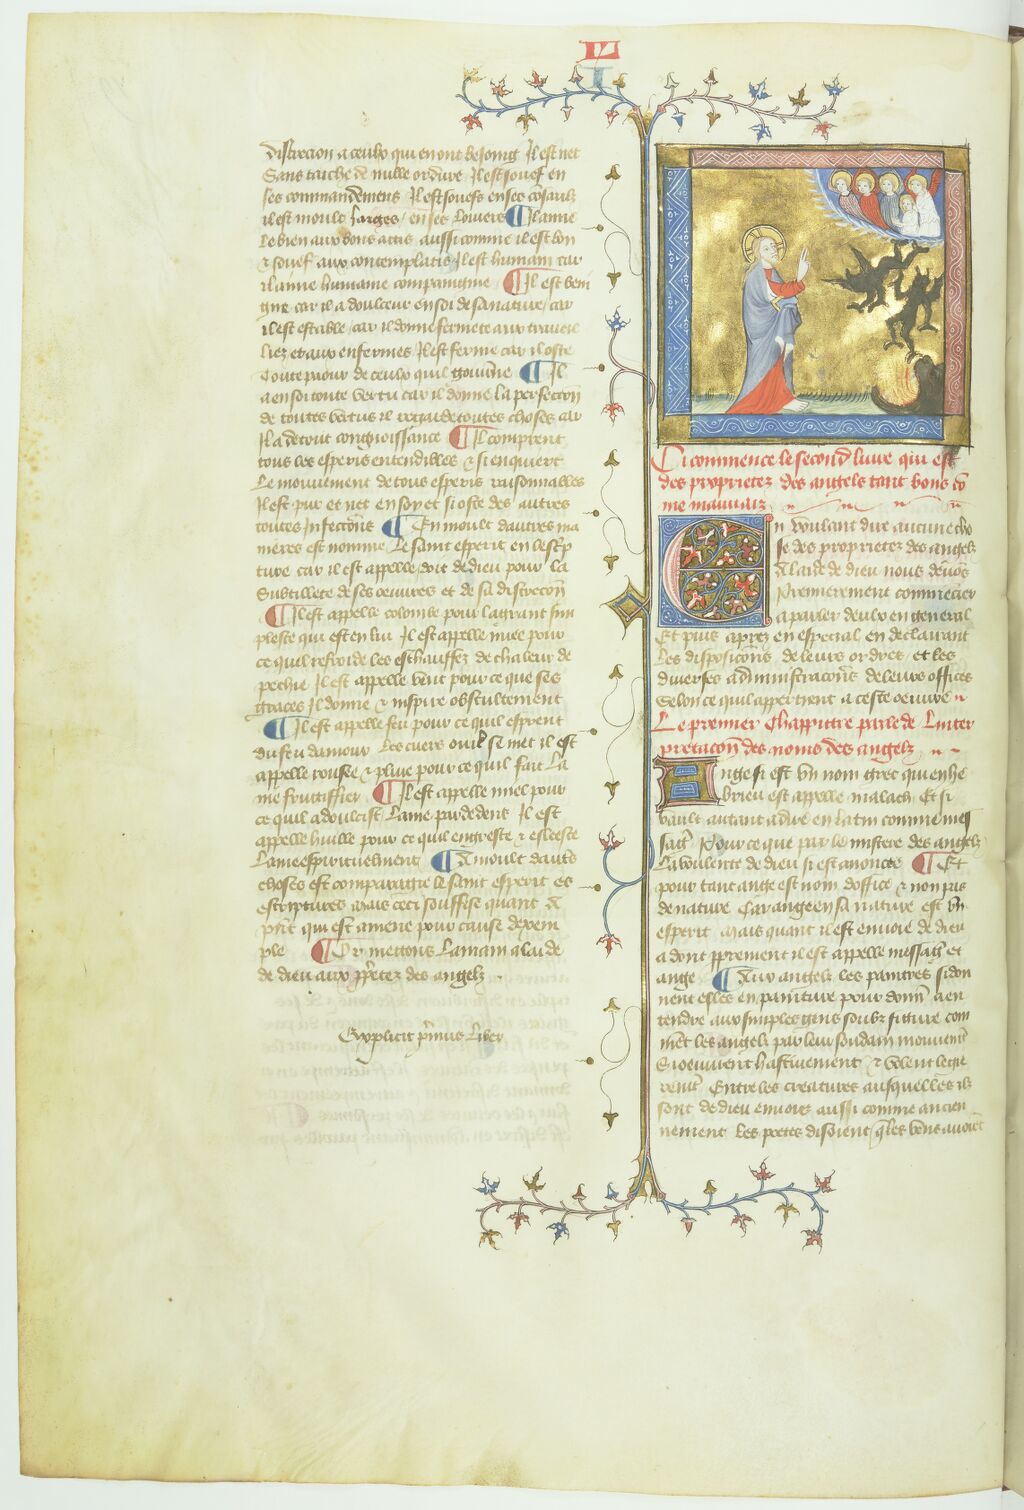 L
discrecion a ceulx qui en ont besoing Il est net
Sans taiche de nulle ordure Il est souef en
ses commandemens Il est souefs en ses consaulz
il est moult larges en ses louiers ¶ Il ame
le bien aux bons actis aussi comme il est bon
⁊ souef aux contemplatis Il est humain car
il aime humaine compaingnie ¶ Il est beni
gne car il a doulceur en soi de sa nature car
il est estable car il donne fermete aux traueil
liez et aux enfermes Il est ferme car il oste
toute paour de ceulx quil gouuerne ¶ Il
a en soi toute vertu car il donne la perfection
de toutes vertus il regarde toutes choses car
Il a de tout congnoissance ¶ Il comprent
tous les esperis entendibles ⁊ si enquiert
Le mouuement de tous esperis raisonnables
Il est pur et net en soy et si oste des autres
toutes Infections ¶ En moult dautres ma
nieres est nomme Le saint esperit en lescrip
ture car il est appelle doit de dieu pour la
Subtillete de ses oeuures et de sa discrecion
¶ Il est appelle colombe pour la grant sim
plesce qui est en lui Il est appelle nuee pour
ce quil refroide les eschauffez de chaleur de
pechie Il est appelle vent pour ce que ses
graces Il donne ⁊ inspire obscurement
¶ Il est appelle feu pour ce quil esprent
du feu damour Les cuers ou il se met il est
appelle rousee ⁊ pluie pour ce quil fait La
me fruttiffier ¶ Il est appelle miel pour
ce quil adoulcist Lame par dedens Il est
appelle huille pour ce quil engresse ⁊ esleesce
Lame espirituelment ¶ A moult dautres
choses est comparagie le saint esperit es
escriptures mais ceci souffise quant a
present qui est amene pour cause dexem
ple ¶ Or mettons La main a laide
de dieu aux proprietez des angelz .
Explicit primus Liber
Ci commence le second liure qui est
des proprietez des angels tant bons co
me mauuaiz
En voulant dire aucune cho
se des proprietez des angelz
A laide de dieu nous deuons
Premierement commencier
a parler deulx en general
Et puis aprez en especial en declairant
Les disposicions de leurs ordres et les
diuerses administracions de leurs offices
Selon ce quil appertient a ceste oeuure
Le premier Chappittre parle de Linter
pretacion des noms des angelz
Ange si est vn nom grec qui en he
brieu est appelle malach Et si
vault autant a dire en latin comme mes
sagier Pour ce que par le mistere des angelz
La voulente de dieu si est anoncee ¶ Et
pour tant ange est nom doffice ⁊ non pas
de nature Car ange en sa nature est vn
esperit Mais quant il est enuoie de dieu
adont proprement il est appelle messagier et
ange ¶ Aux angelz les paintres si don
nent esles en painture pour donner a en
tendre aux simples gens soubz figure com
ment les angelz par leur soudain mouuement
Si oeuurent hastiuement ⁊ volent legie
rement Entre les creatures ausquelles ilz
sont de dieu enuoiez aussi comme ancien
nement les poetes disoient que les vens auoient